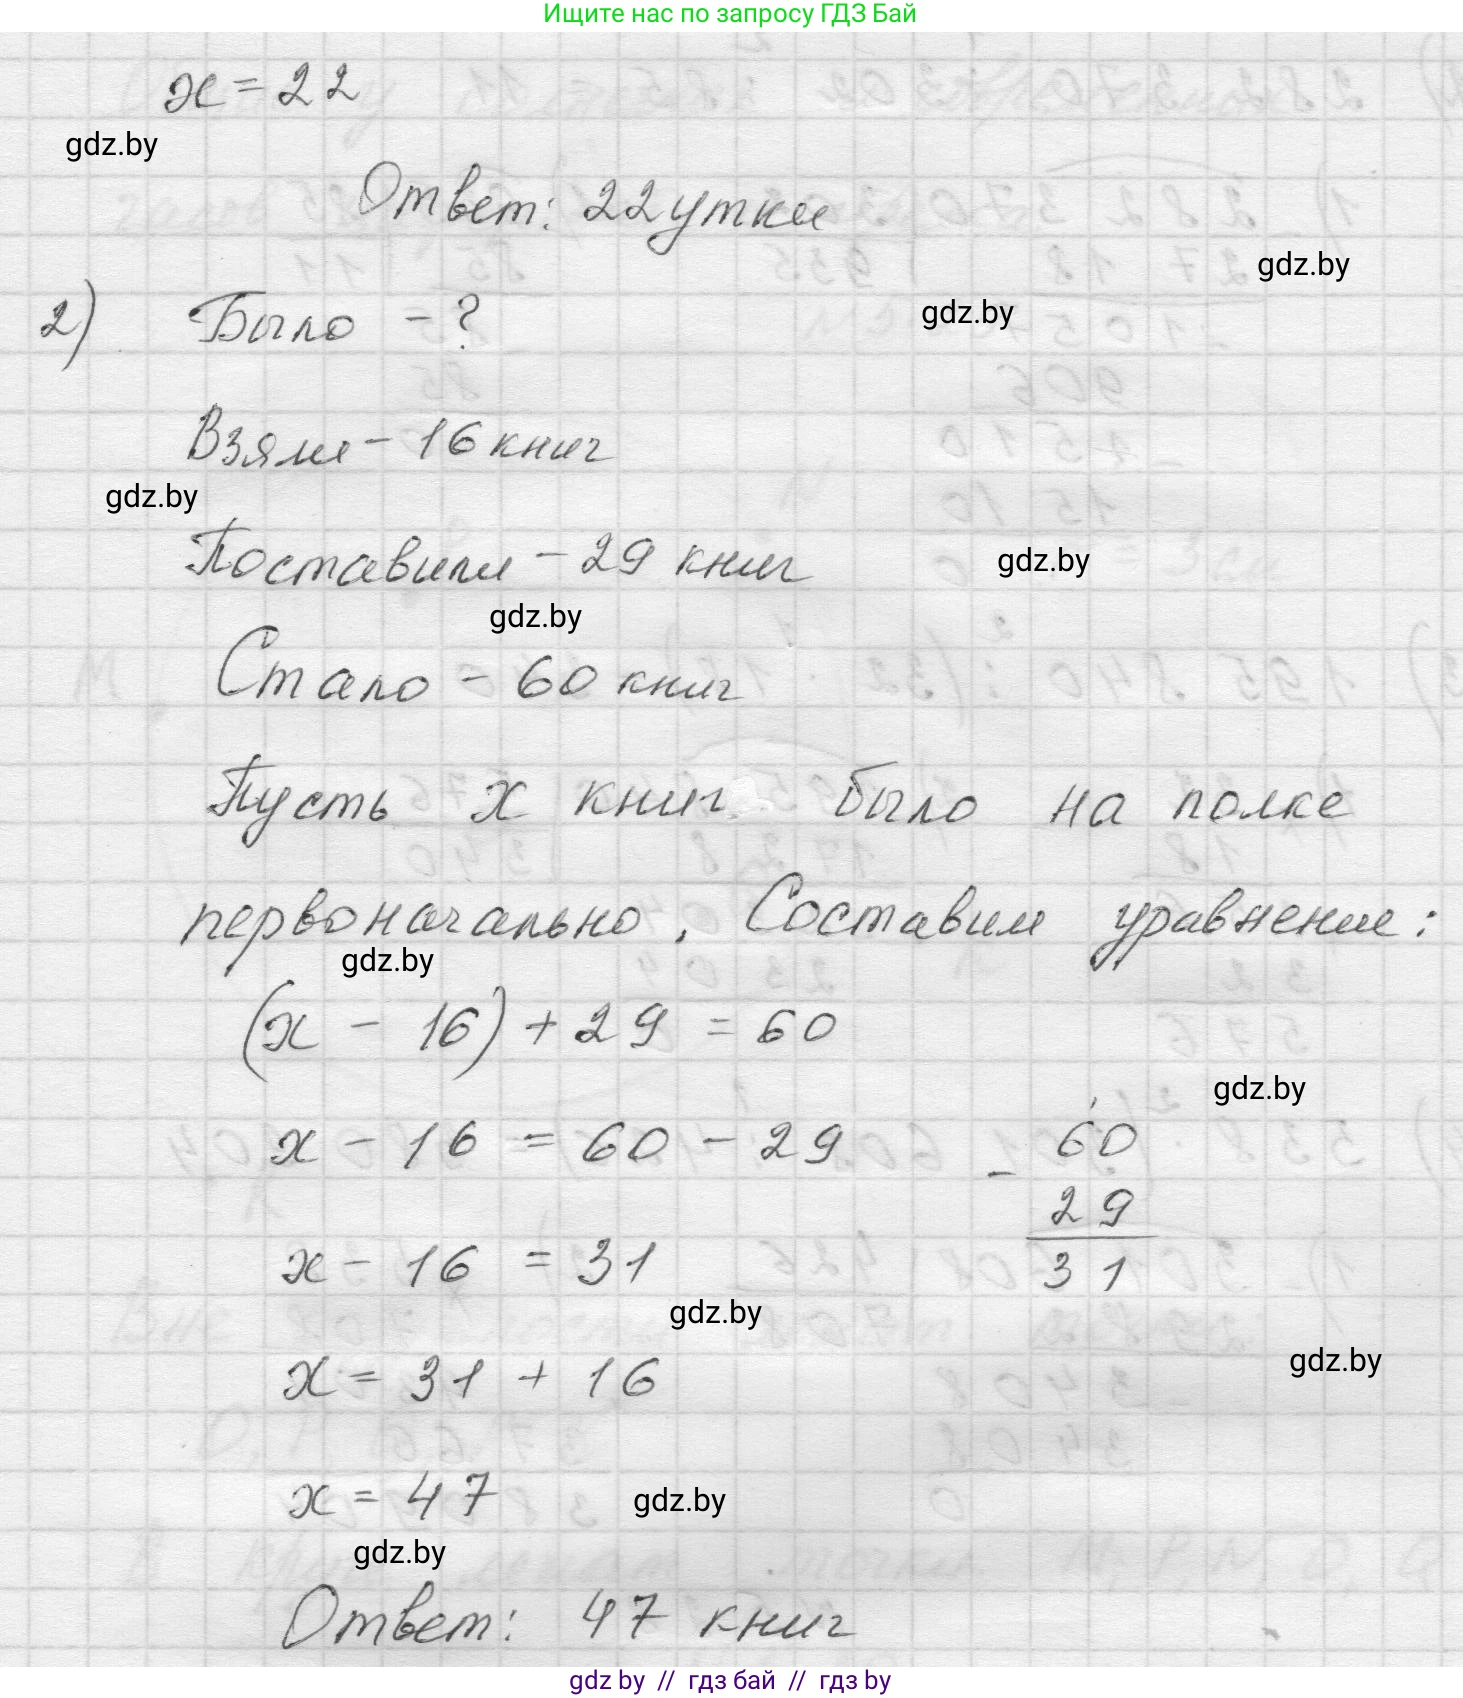 Ищите нас по запросу ГДЗ Бай
x = 22
gdz.by
Ответ: 22 утки
gdz.by
2) Было - ?
gdz.by
Взяли - 16 книг
gdz.by
Поставили - 29 книг
gdz.by
gdz.by
Стало - 60 книг
Пусть x книг было на полке
первоначально. Составим уравнение:
gdz.by
(x - 16) + 29 = 60
gdz.by
x - 16 = 60 - 29
60
- 29
31
x - 16 = 31
gdz.by
gdz.by
x = 31 + 16
x = 47
gdz.by
gdz.by
Ответ: 47 книг
gdz by // гдз бай // гдз by